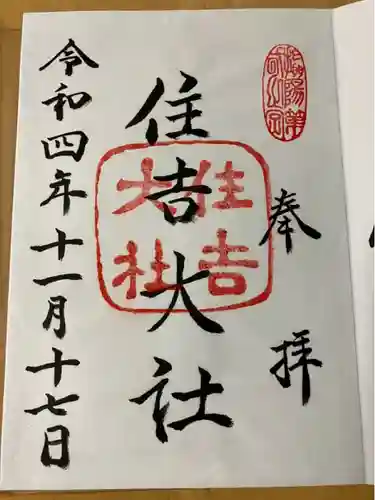 奉拝
住吉大社
住吉
大社
令和四年十一月十七日